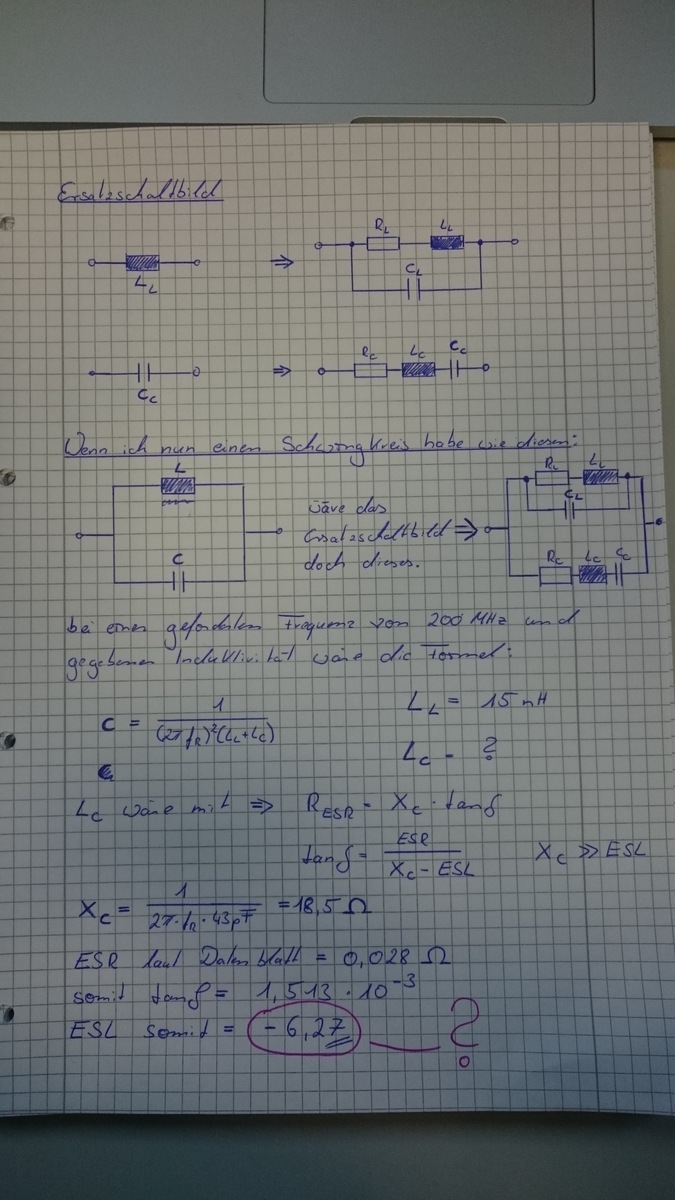 Ersatzschaltbild
R_L L_L
C_L
L_L ⇒
R_C L_C C_C
C_C ⇒
Wenn ich nun einen Schwingkreis habe wie diesen:
L
C
wäre das
Ersatzschaltbild ⇒
doch dieses.
R_L L_L
C_L
R_C L_C C_C
bei einer geforderten Frequenz von 200 MHz und
gegebenen Induktivität wäre die Formel:
C = 1 / ((2π f_R)²(L_L+L_C))
L_L = 15 nH
L_C = ?
L_C wäre mit ⇒ R_ESR = X_C · tanδ
tanδ = ESR / (X_C - ESL) X_C >> ESL
X_C = 1 / (2π · f_R · 43pF) = 18,5 Ω
ESR laut Datenblatt = 0,028 Ω
somit tanδ = 1,513 · 10⁻³
ESL somit = -6,27 ?